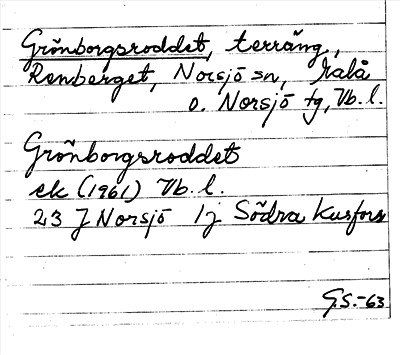 Grönborgsroddet, terräng,
Renberget, Norsjö sn, Malå
o. Norsjö tg, Vb. l.
Grönborgsroddet
ek (1961) Vb. l.
23 J Norsjö 1j Södra Kusfors
G.S.-63